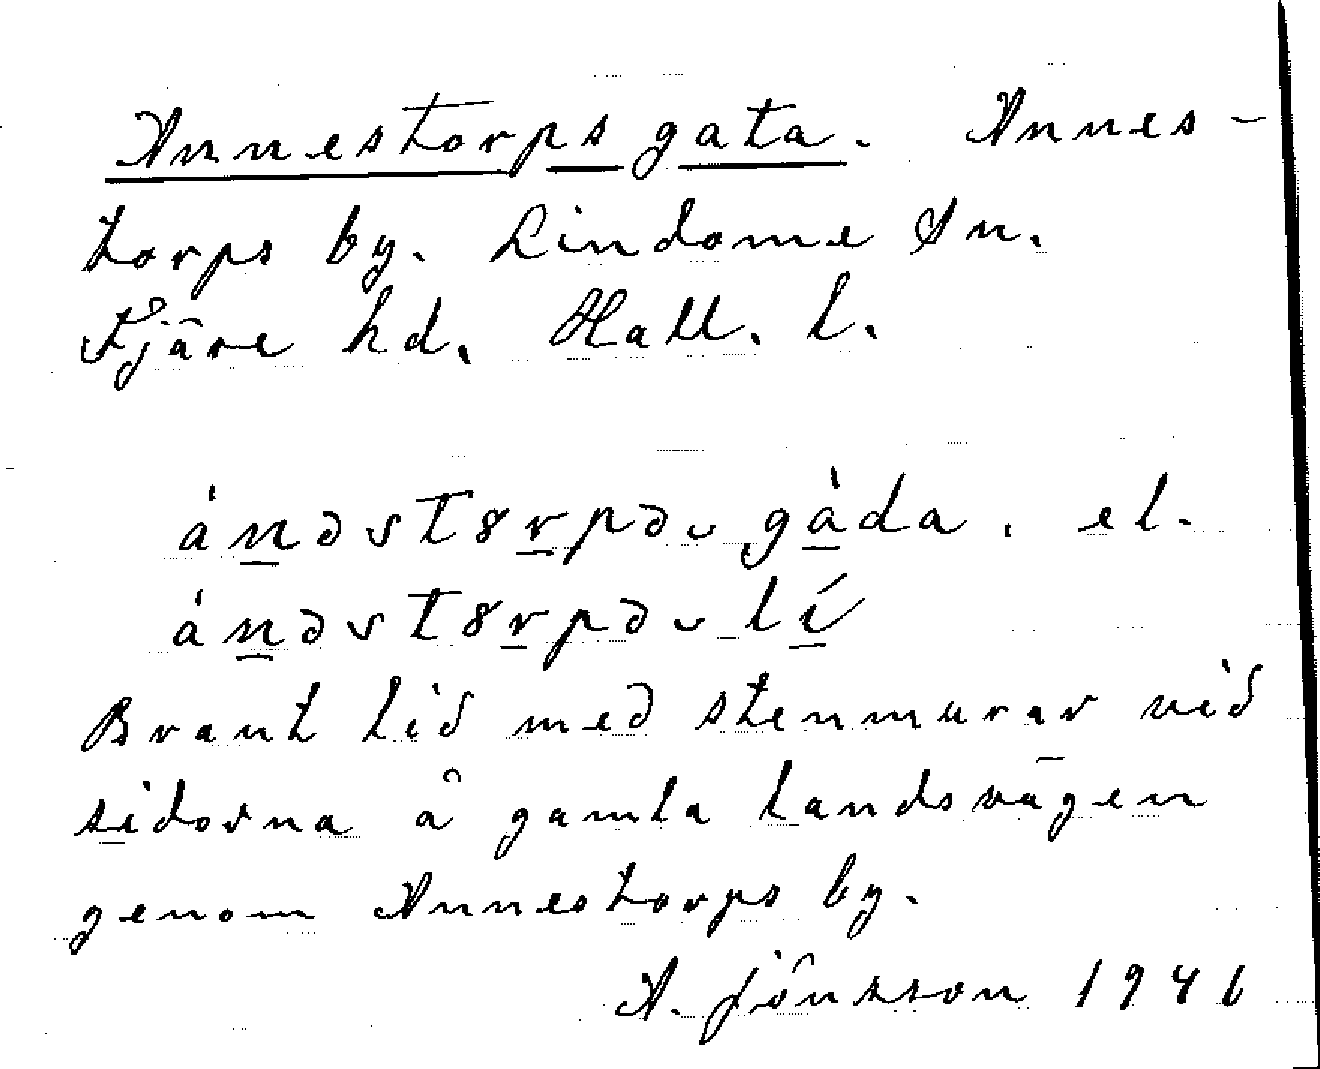 Annestorps gata. Annes-
torps by. Lindome Sn.
Fjäre hd. Hall. l.
ànəstɤrpəs gàda. el.
ànəstɤrpəs lí
Brant lid med stenmurar vid
sidorna å gamla landsvägen
genom Annestorps by.
A. Jönsson 1946